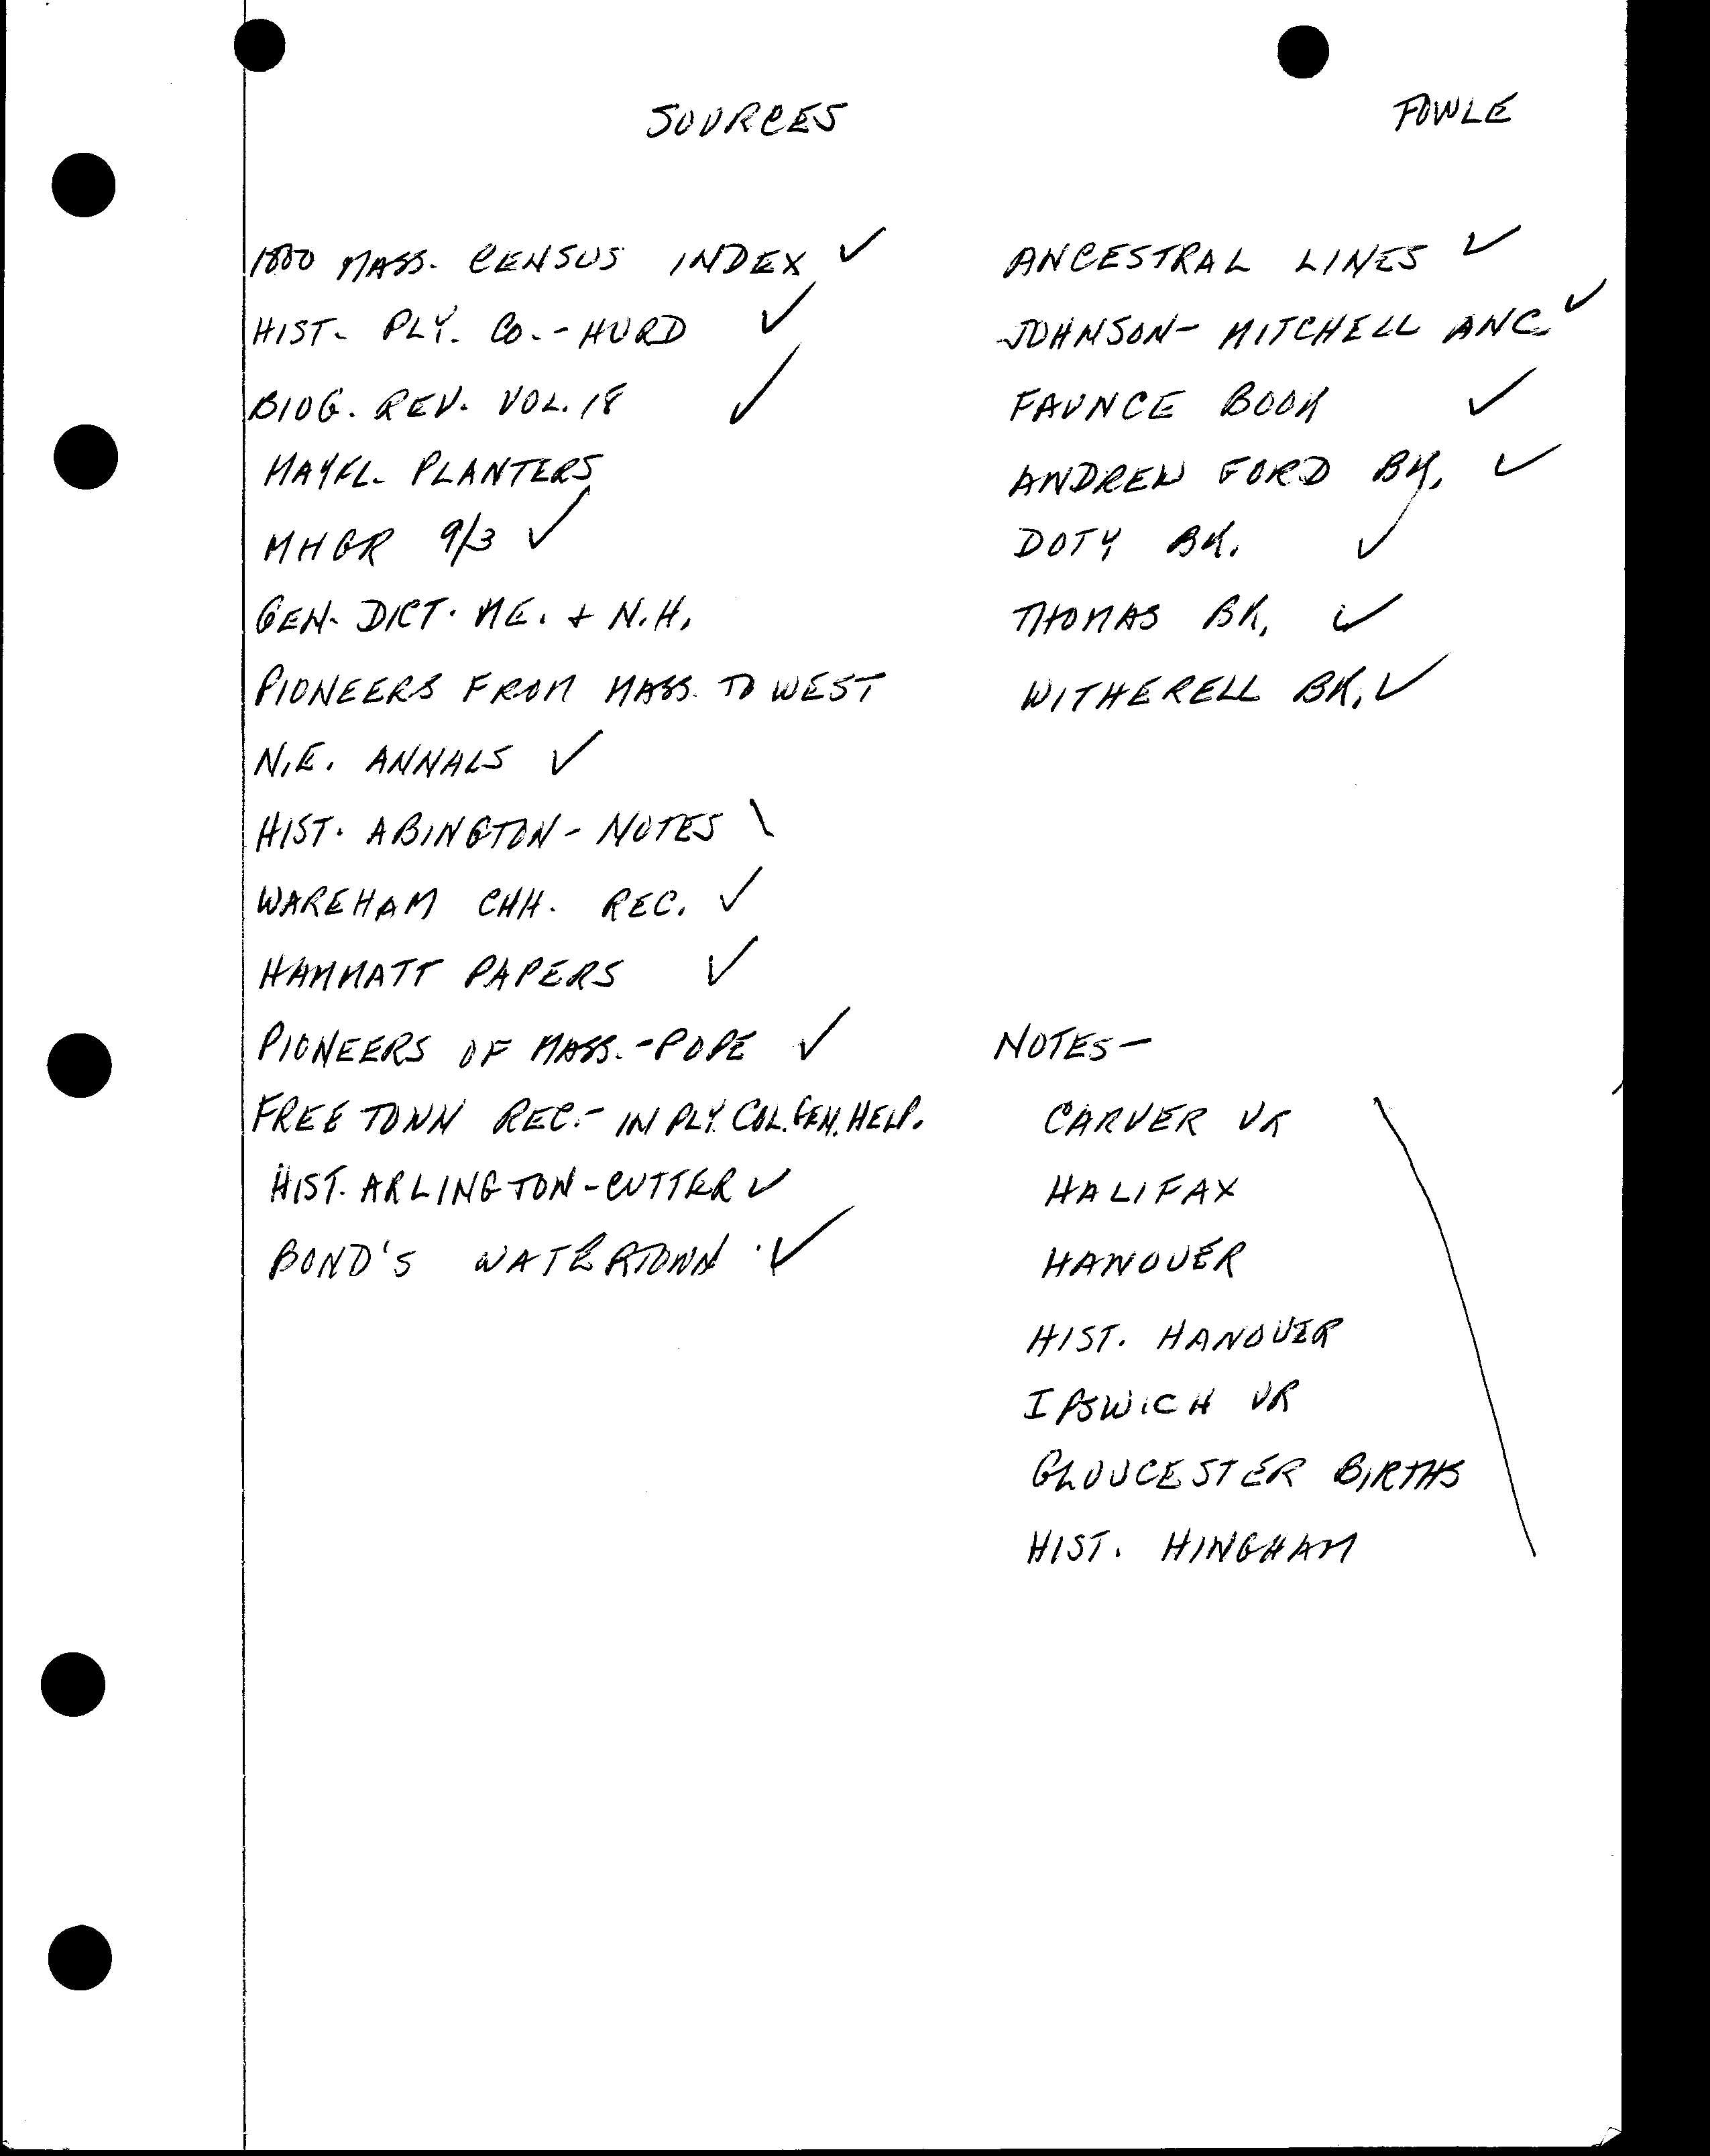 SOURCES
FOWLE
1800 MASS. CENSUS INDEX ✓
HIST. PLY. CO. - HURD ✓
BIOG. REV. VOL. 18 ✓
MAYFL. PLANTERS
MHGR 9/3 ✓
GEN. DICT. ME. + N.H.
PIONEERS FROM MASS. TO WEST
N.E. ANNALS ✓
HIST. ABINGTON - NOTES \
WAREHAM CHH. REC. ✓
HAMMATT PAPERS ✓
PIONEERS OF MASS. - POPE ✓
FREETOWN REC. - IN PLY. COL. GEN. HELP.
HIST. ARLINGTON - CUTTER ✓
BOND'S WATERTOWN ✓
ANCESTRAL LINES ✓
JOHNSON - MITCHELL ANC. ✓
FAUNCE BOOK ✓
ANDREW FORD BK. ✓
DOTY BK. ✓
THOMAS BK. ✓
WITHERELL BK. ✓
NOTES -
CARVER VR
HALIFAX
HANOVER
HIST. HANOVER
IPSWICH VR
GLOUCESTER BIRTHS
HIST. HINGHAM